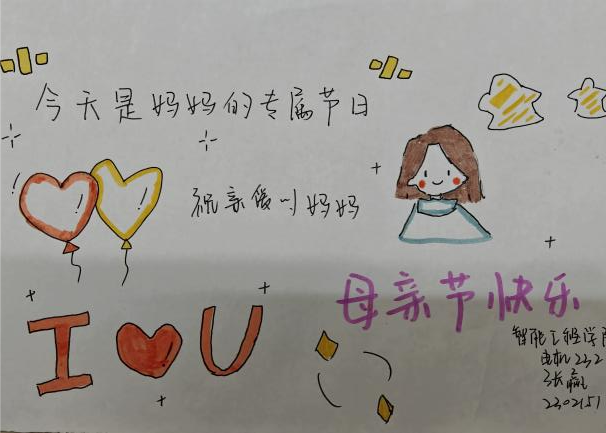 今天是妈妈的专属节日
祝亲爱的妈妈
母亲节快乐
I U
智能工程学
电机232
张赢
2302151